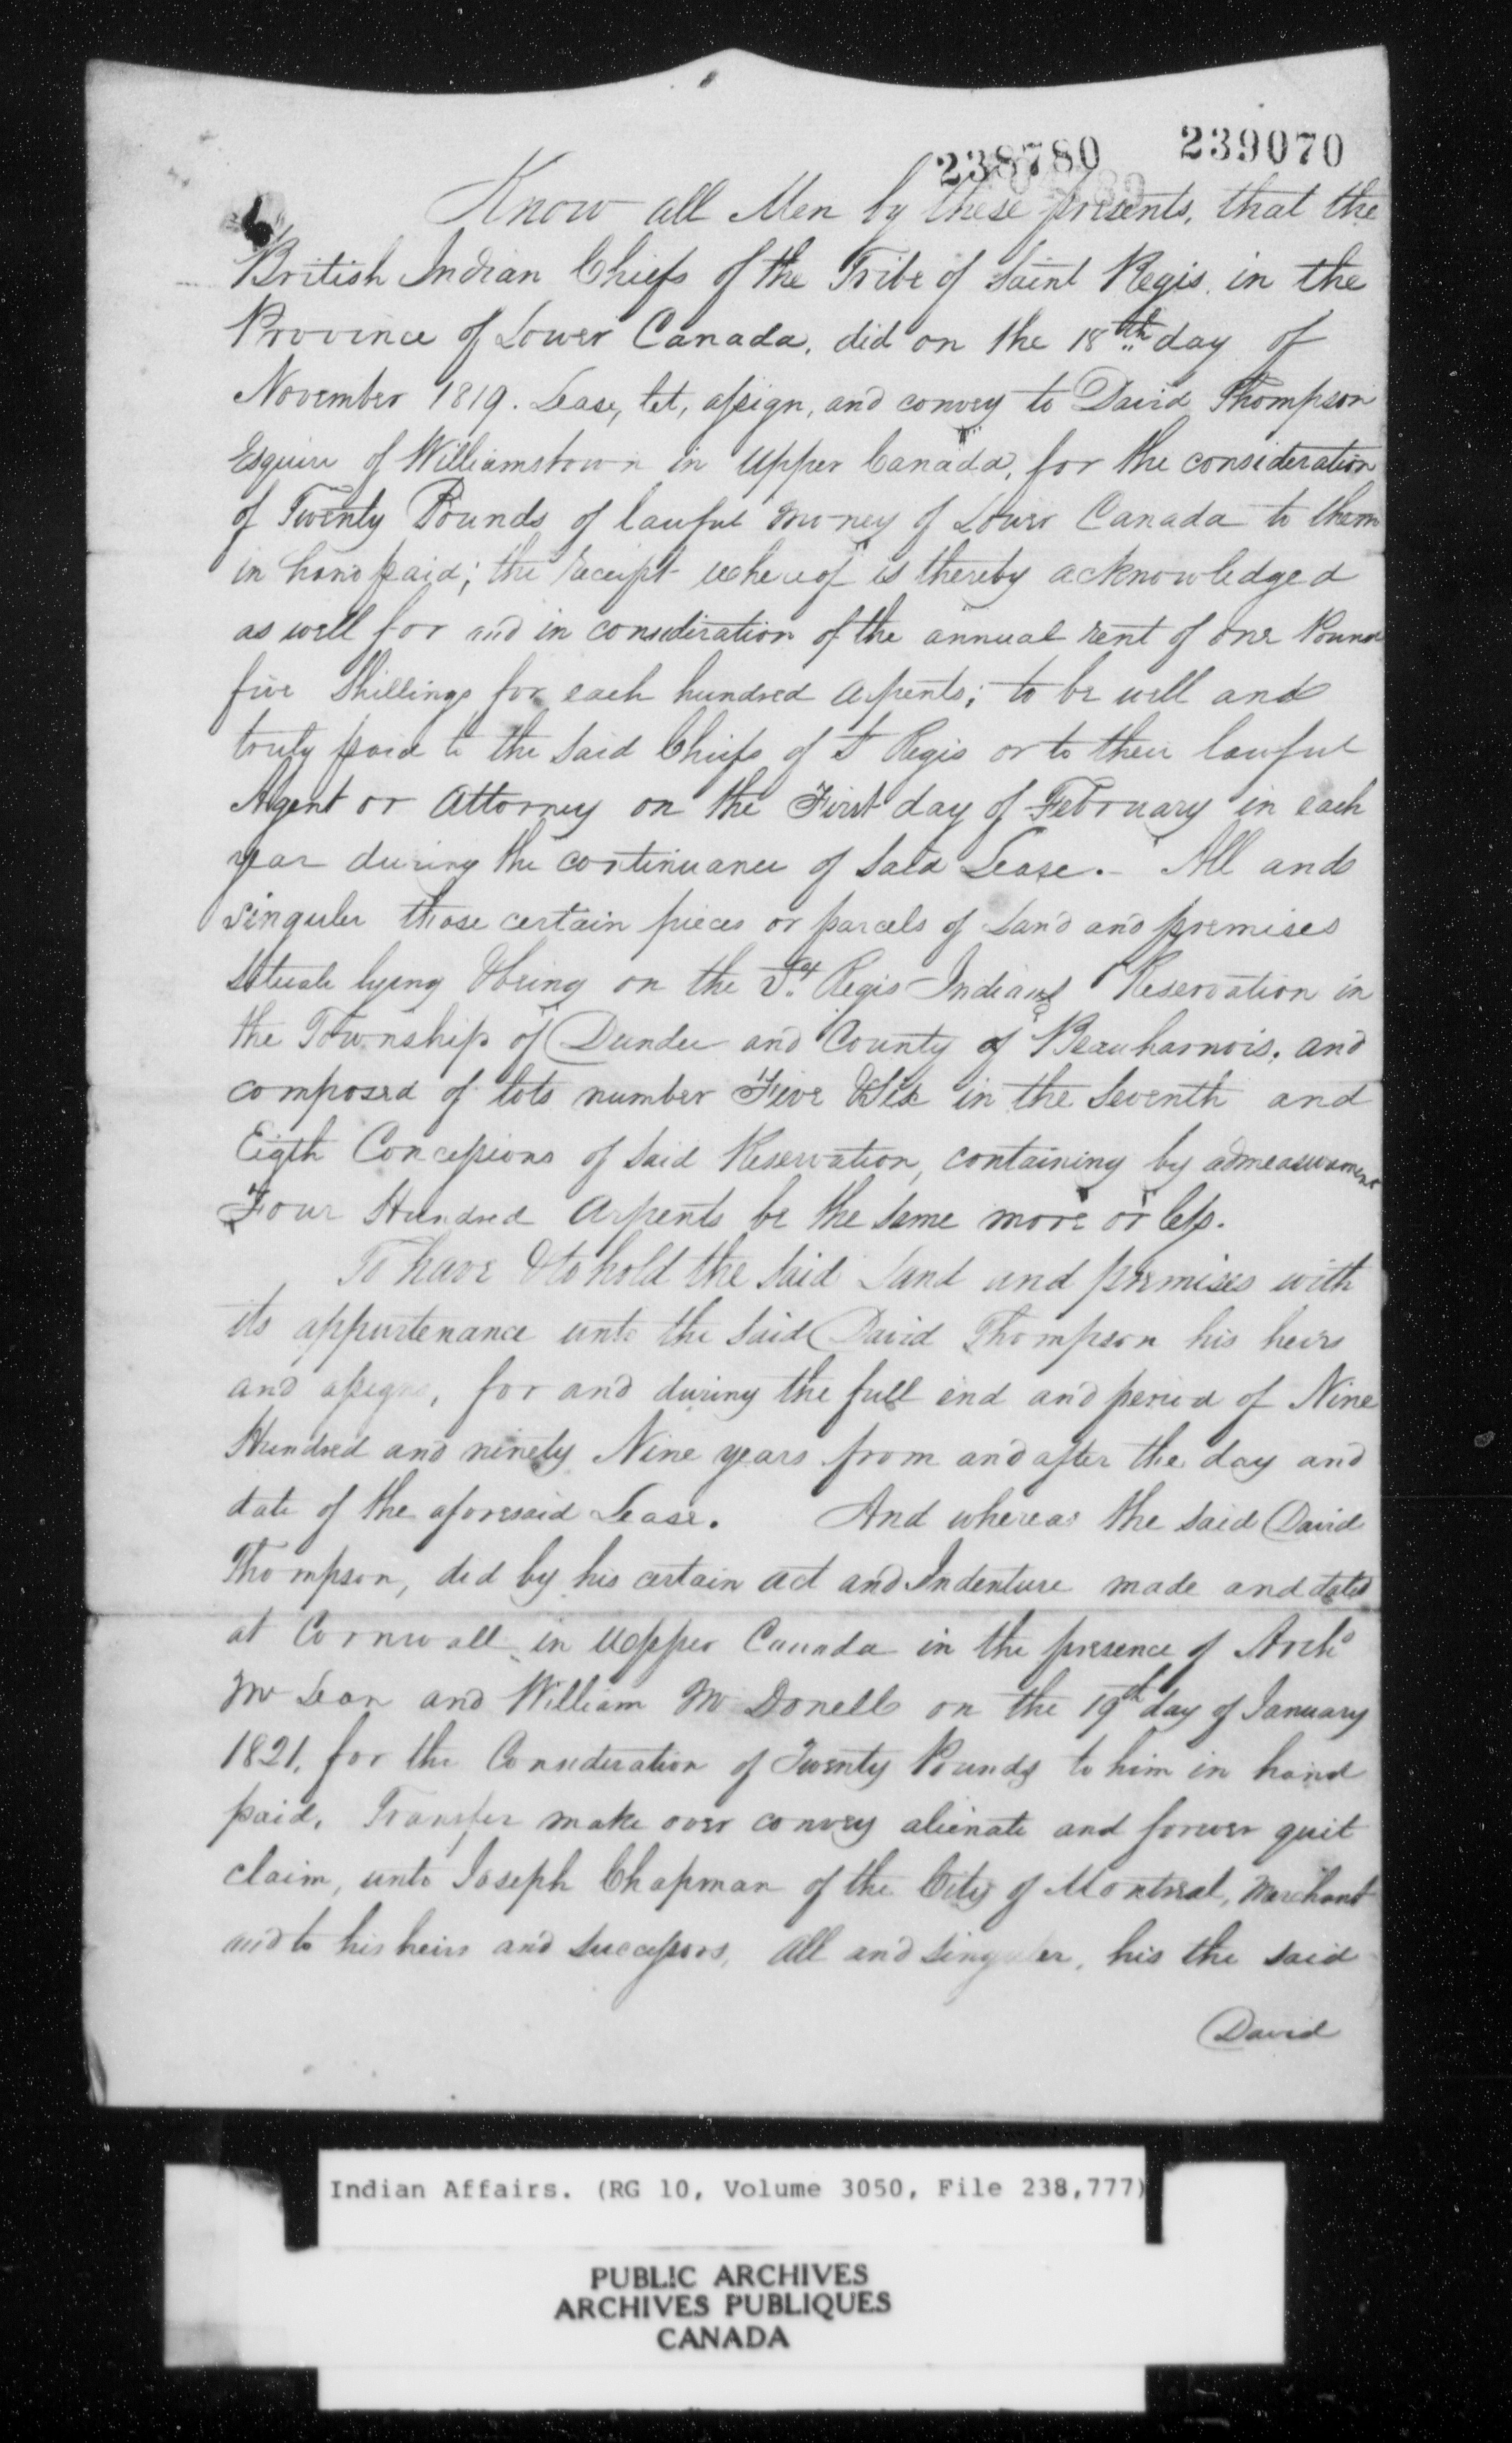 238780 239070
Know all Men by these presents, that the
British Indian Chiefs of the Tribe of Saint Regis in the
Province of Lower Canada, did on the 18th day of
November 1819. Lease, let, assign, and convey to David Thompson
Esquire of Williamstown in Upper Canada, for the consideration
of Twenty Pounds of lawful money of Lower Canada to them
in hand paid; the receipt whereof is thereby acknowledged
as well for and in consideration of the annual rent of one Pound
five Shillings for each hundred arpents; to be well and
truly paid to the said Chiefs of St Regis or to their lawful
Agent or Attorney on the First day of February in each
year during the continuance of said Lease. - All and
singuler those certain pieces or parcels of Land and premises
situate lying & being on the St. Regis Indians Reservation in
the Township of Dundee and County of Beauharnois, and
composed of lots number Five & Six in the Seventh and
Eigth Concessions of said Reservation, containing by admeasurement
Four Hundred Arpents be the same more or less.
To have & to hold the said Land and premises with
its appurtenance unto the said David Thompson his heirs
and assigns, for and during the full end and period of Nine
Hundred and ninety Nine years from and after the day and
date of the aforesaid Lease. And whereas the said David
Thompson, did by his certain act and Indenture made and dated
at Cornwall in Upper Canada in the presence of Archd
Mc Lean and William Mc Donell on the 19th day of January
1821, for the Consideration of Twenty Pounds to him in hand
paid, Transfer make over convey alienate and forever quit
claim, unto Joseph Chapman of the City of Montreal, Merchant
and to his heirs and successors, all and singuler, his the said
David
Indian Affairs. (RG 10, Volume 3050, File 238,777)
PUBLIC ARCHIVES
ARCHIVES PUBLIQUES
CANADA